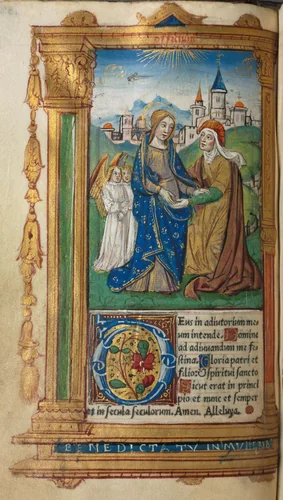 Eus in adiutorium me
um intende. Domine
ad adiuuandum me fe
stina. Gloria patri et
filio: Spiritui sancto
Sicut erat in princi
pio et nunc et semper
et in secula seculorum. Amen. Alleluya.
BENEDICTA TV IN MVLIE